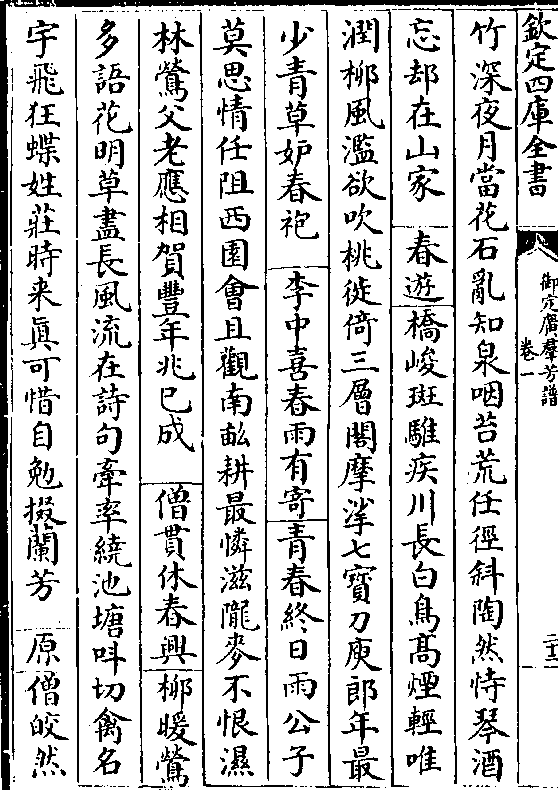 欽定四庫全書
御定廣羣芳譜
卷一
竹深夜月當花石亂知泉咽苔荒任徑斜陶然恃琴酒
忘却在山家　春遊橋峻斑騅疾川長白鳥髙煙輕唯
潤柳風濫欲吹桃徙倚三層閣摩挲七寶刀庾郎年最
少青草妒春袍　李中喜春雨有寄青春終日雨公子
莫思情任阻西園會且觀南畝耕最憐滋隴麥不恨濕
林鶯父老應相賀豐年兆已成　僧貫休春興柳暖鶯
多語花明草盡長風流在詩句牽率繞池塘呌切禽名
宇飛狂蝶姓莊時来眞可惜自勉掇蘭芳　原僧皎然